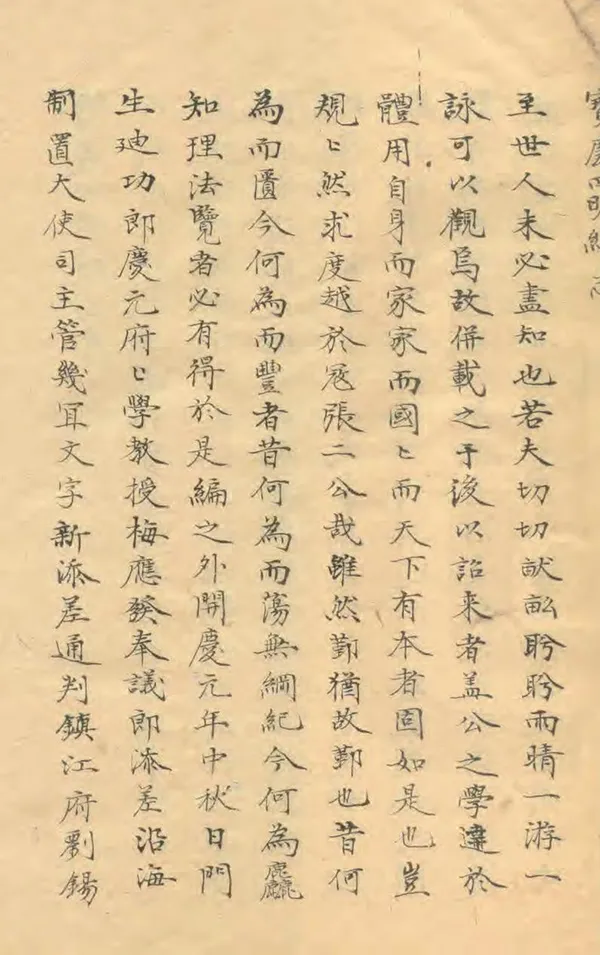 寶慶四明續志
至世人未必盡知也若夫切切畎畝盻盻雨晴一游一
詠可以觀焉故併載之于後以詔来者盖公之學達於
體用自身而家家而國〻而天下有本者固如是也豈
規〻然求度越於寇張二公哉雖然鄞猶故鄞也昔何
為而匱今何為而豐者昔何為而蕩無綱紀今何為麤
知理法覽者必有得於是編之外開慶元年中秋日門
生廸功郎慶元府〻學教授梅應發奉議郎添差沿海
制置大使司主管幾冝文字新添差通判鎮江府劉錫